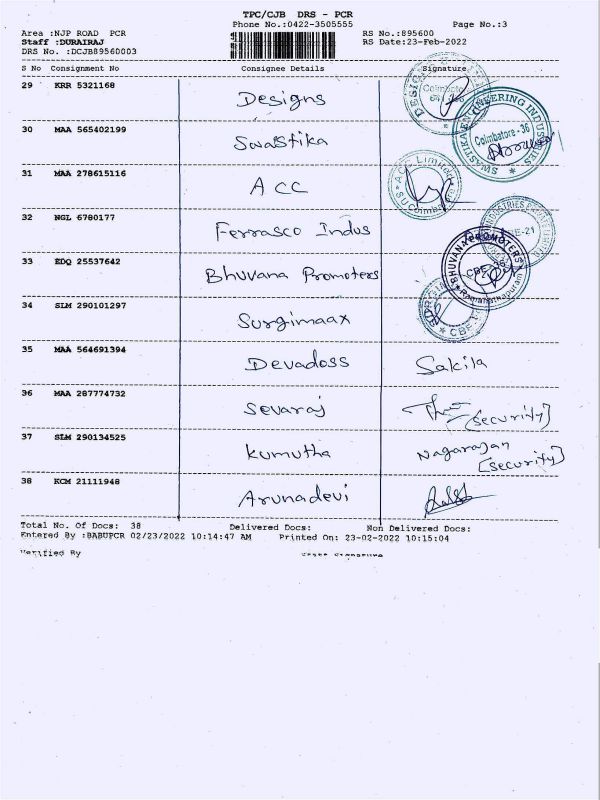 TPC/CJB DRS - PCR
Phone No.:0422-3505555 Page No.:3
Area :NJP ROAD PCR RS No.:895600
Staff :DURAIRAJ RS Date:23-Feb-2022
DRS No. :DCJB89560003
S No Consignment No Consignee Details Signature
29 KRR 5321168 Designs
Coimbatore
30 MAA 565402199 Swastika
SWASTIKA ENGINEERING INDUSTRIES
Coimbatore - 36
31 MAA 278615116 ACC
ACC Limited
32 NGL 6780177 Ferrasco Indus
INDUSTRIES PRIVATE LIMITED
CBE-21
33 EDQ 25537642 Bhuvana Promoters
BHUVANA PROMOTERS
Ramanathapuram
34 SLM 290101297 Surgimaax
CBE
35 MAA 564691394 Devadoss Sakila
36 MAA 287774732 Sevaraj [Security]
37 SLM 290134525 Kumutha Nagarajan
[Security]
38 KCM 21111948 Arunadevi
Total No. Of Docs: 38 Delivered Docs: Non Delivered Docs:
Entered By :BABUPCR 02/23/2022 10:14:47 AM Printed On: 23-02-2022 10:15:04
Verified By